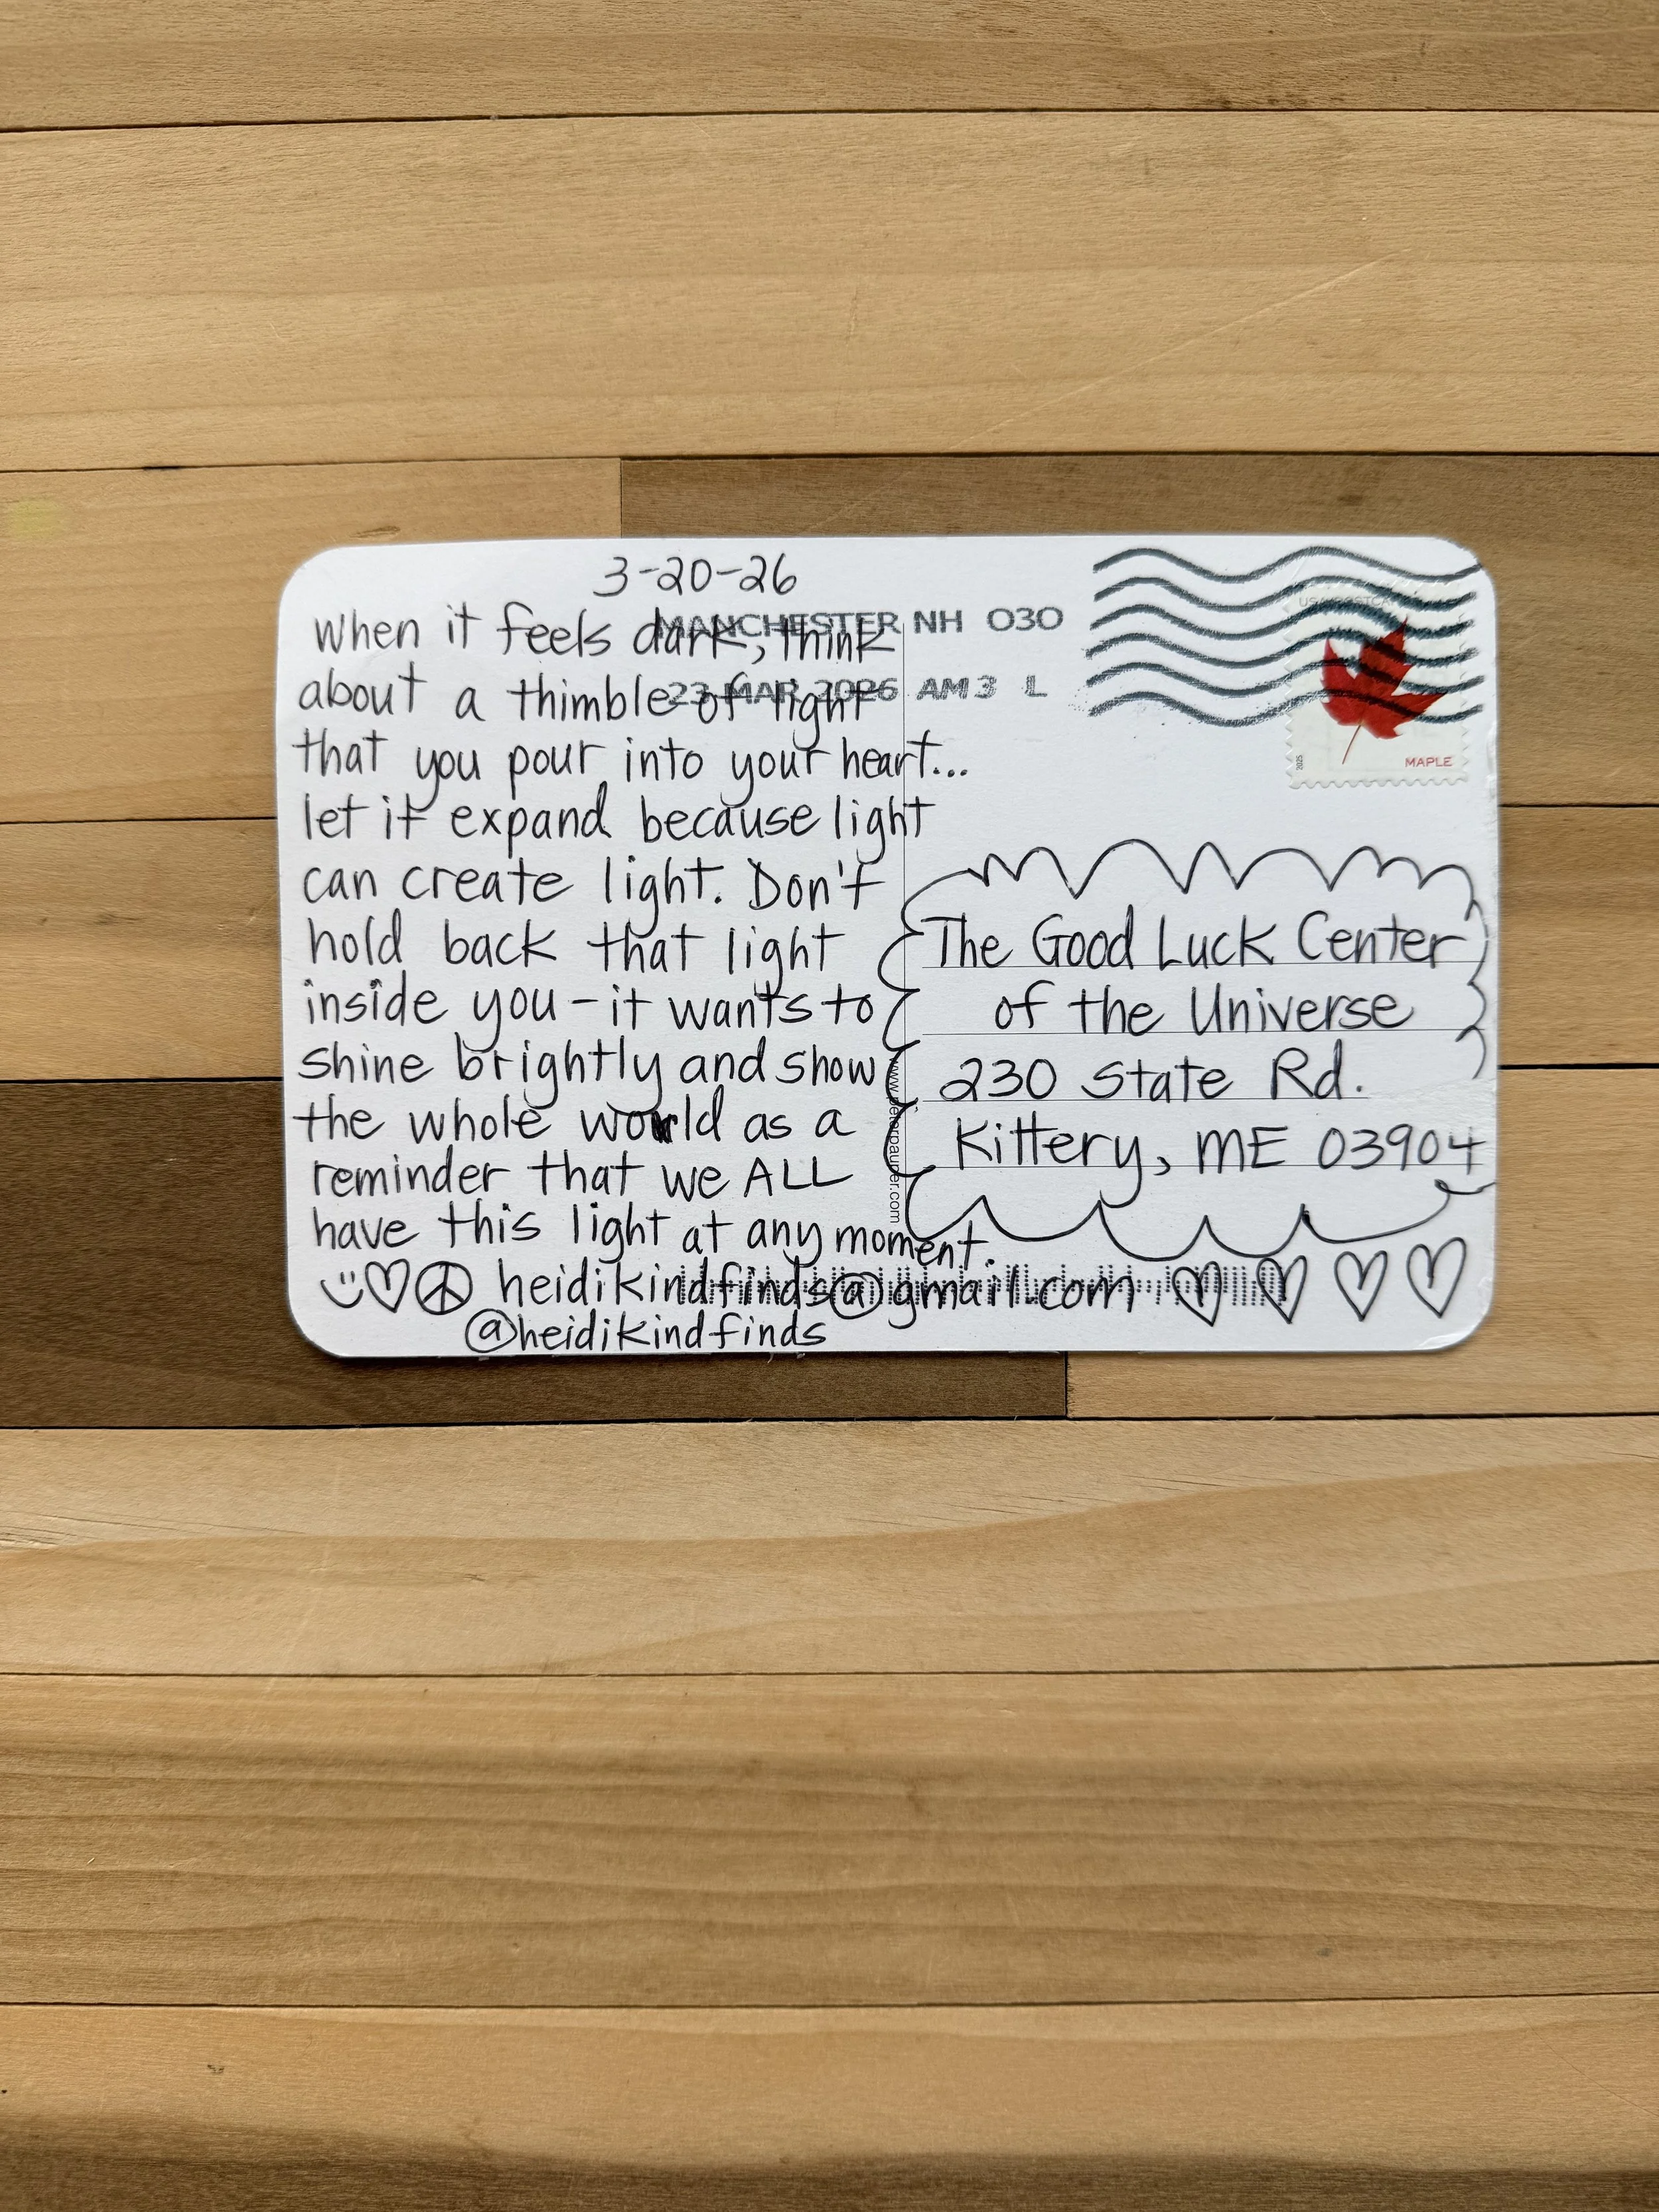 3-20-26
When it feels dark, think
about a thimble of light
that you pour into your heart...
let it expand because light
can create light. Don't
hold back that light
inside you - it wants to
shine brightly and show
the whole world as a
reminder that we ALL
have this light at any moment.
heidikindfinds@gmail.com
@heidikindfinds
MANCHESTER NH 030
23 MAR 2026 AM 3 L
2025
MAPLE
The Good Luck Center
of the Universe
230 State Rd.
Kittery, ME 03904
www.peterpauper.com